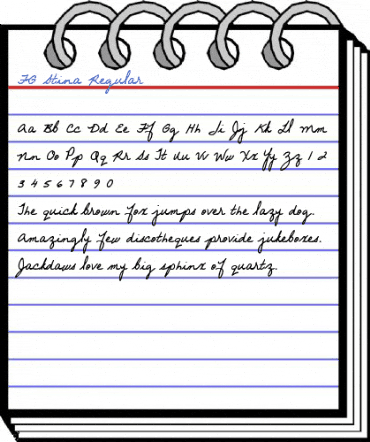 FG Stina Regular
Aa Bb Cc Dd Ee Ff Gg Hh Ii Jj Kk Ll Mm
Nn Oo Pp Qq Rr Ss Tt Uu Vv Ww Xx Yy Zz 1 2
3 4 5 6 7 8 9 0
The quick brown fox jumps over the lazy dog.
Amazingly few discotheques provide jukeboxes.
Jackdaws love my big sphinx of quartz.